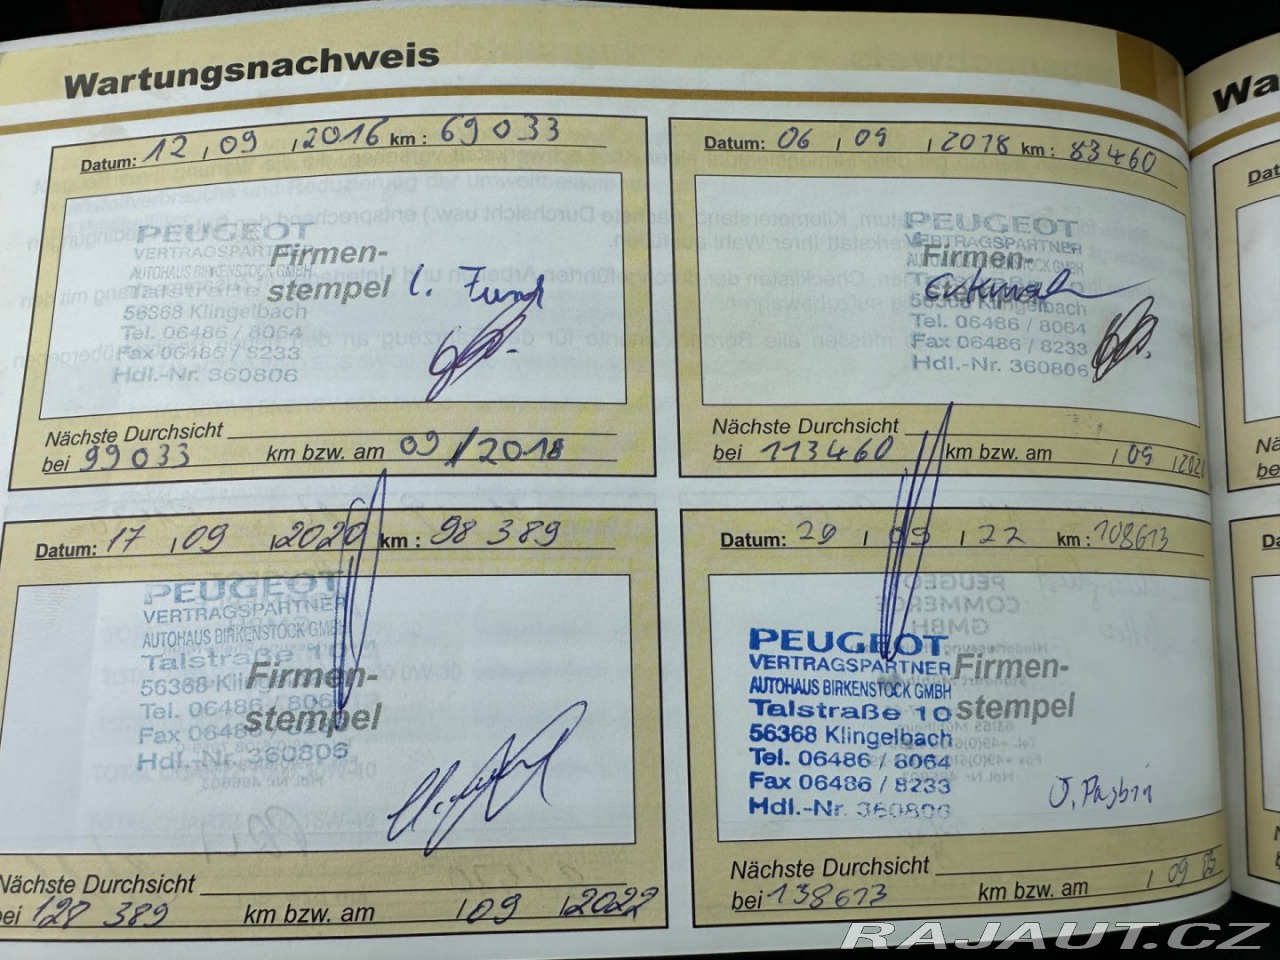 Wartungsnachweis
Datum: 12 / 09 / 2016 km : 69 033
PEUGEOT
VERTRAGSPARTNER
AUTOHAUS BIRKENSTOCK GMBH
Talstraße
56368 Klingelbach
Tel. 06486 / 8064
Fax 06486 / 8233
Hdl.-Nr. 360806
Firmen-
stempel
Nächste Durchsicht
bei 99 033 km bzw. am 09 / 2018
Datum: 06 / 09 / 2018 km : 83 460
PEUGEOT
VERTRAGSPARTNER
56368 Klingelbach
Tel. 06486 / 8064
Fax 06486 / 8233
Hdl.-Nr. 360806
Firmen-
stempel
Nächste Durchsicht
bei 113 460 km bzw. am / 09 / 202
Datum: 17 / 09 / 2020 km : 98 389
PEUGEOT
VERTRAGSPARTNER
AUTOHAUS BIRKENSTOCK GMBH
Talstraße 10
56368 Klingel
Tel. 06486 / 806
Fax 06486 / 8233
Hdl.-Nr. 360806
Firmen-
stempel
Nächste Durchsicht
bei 128 389 km bzw. am / 09 / 2022
Datum: 29 / 09 / 22 km : 108613
PEUGEOT
VERTRAGSPARTNER
AUTOHAUS BIRKENSTOCK GMBH
Talstraße 10
56368 Klingelbach
Tel. 06486 / 8064
Fax 06486 / 8233
Hdl.-Nr. 360806
Firmen-
stempel
Nächste Durchsicht
bei 138613 km bzw. am / 09
Wa
RAJAUT.CZ